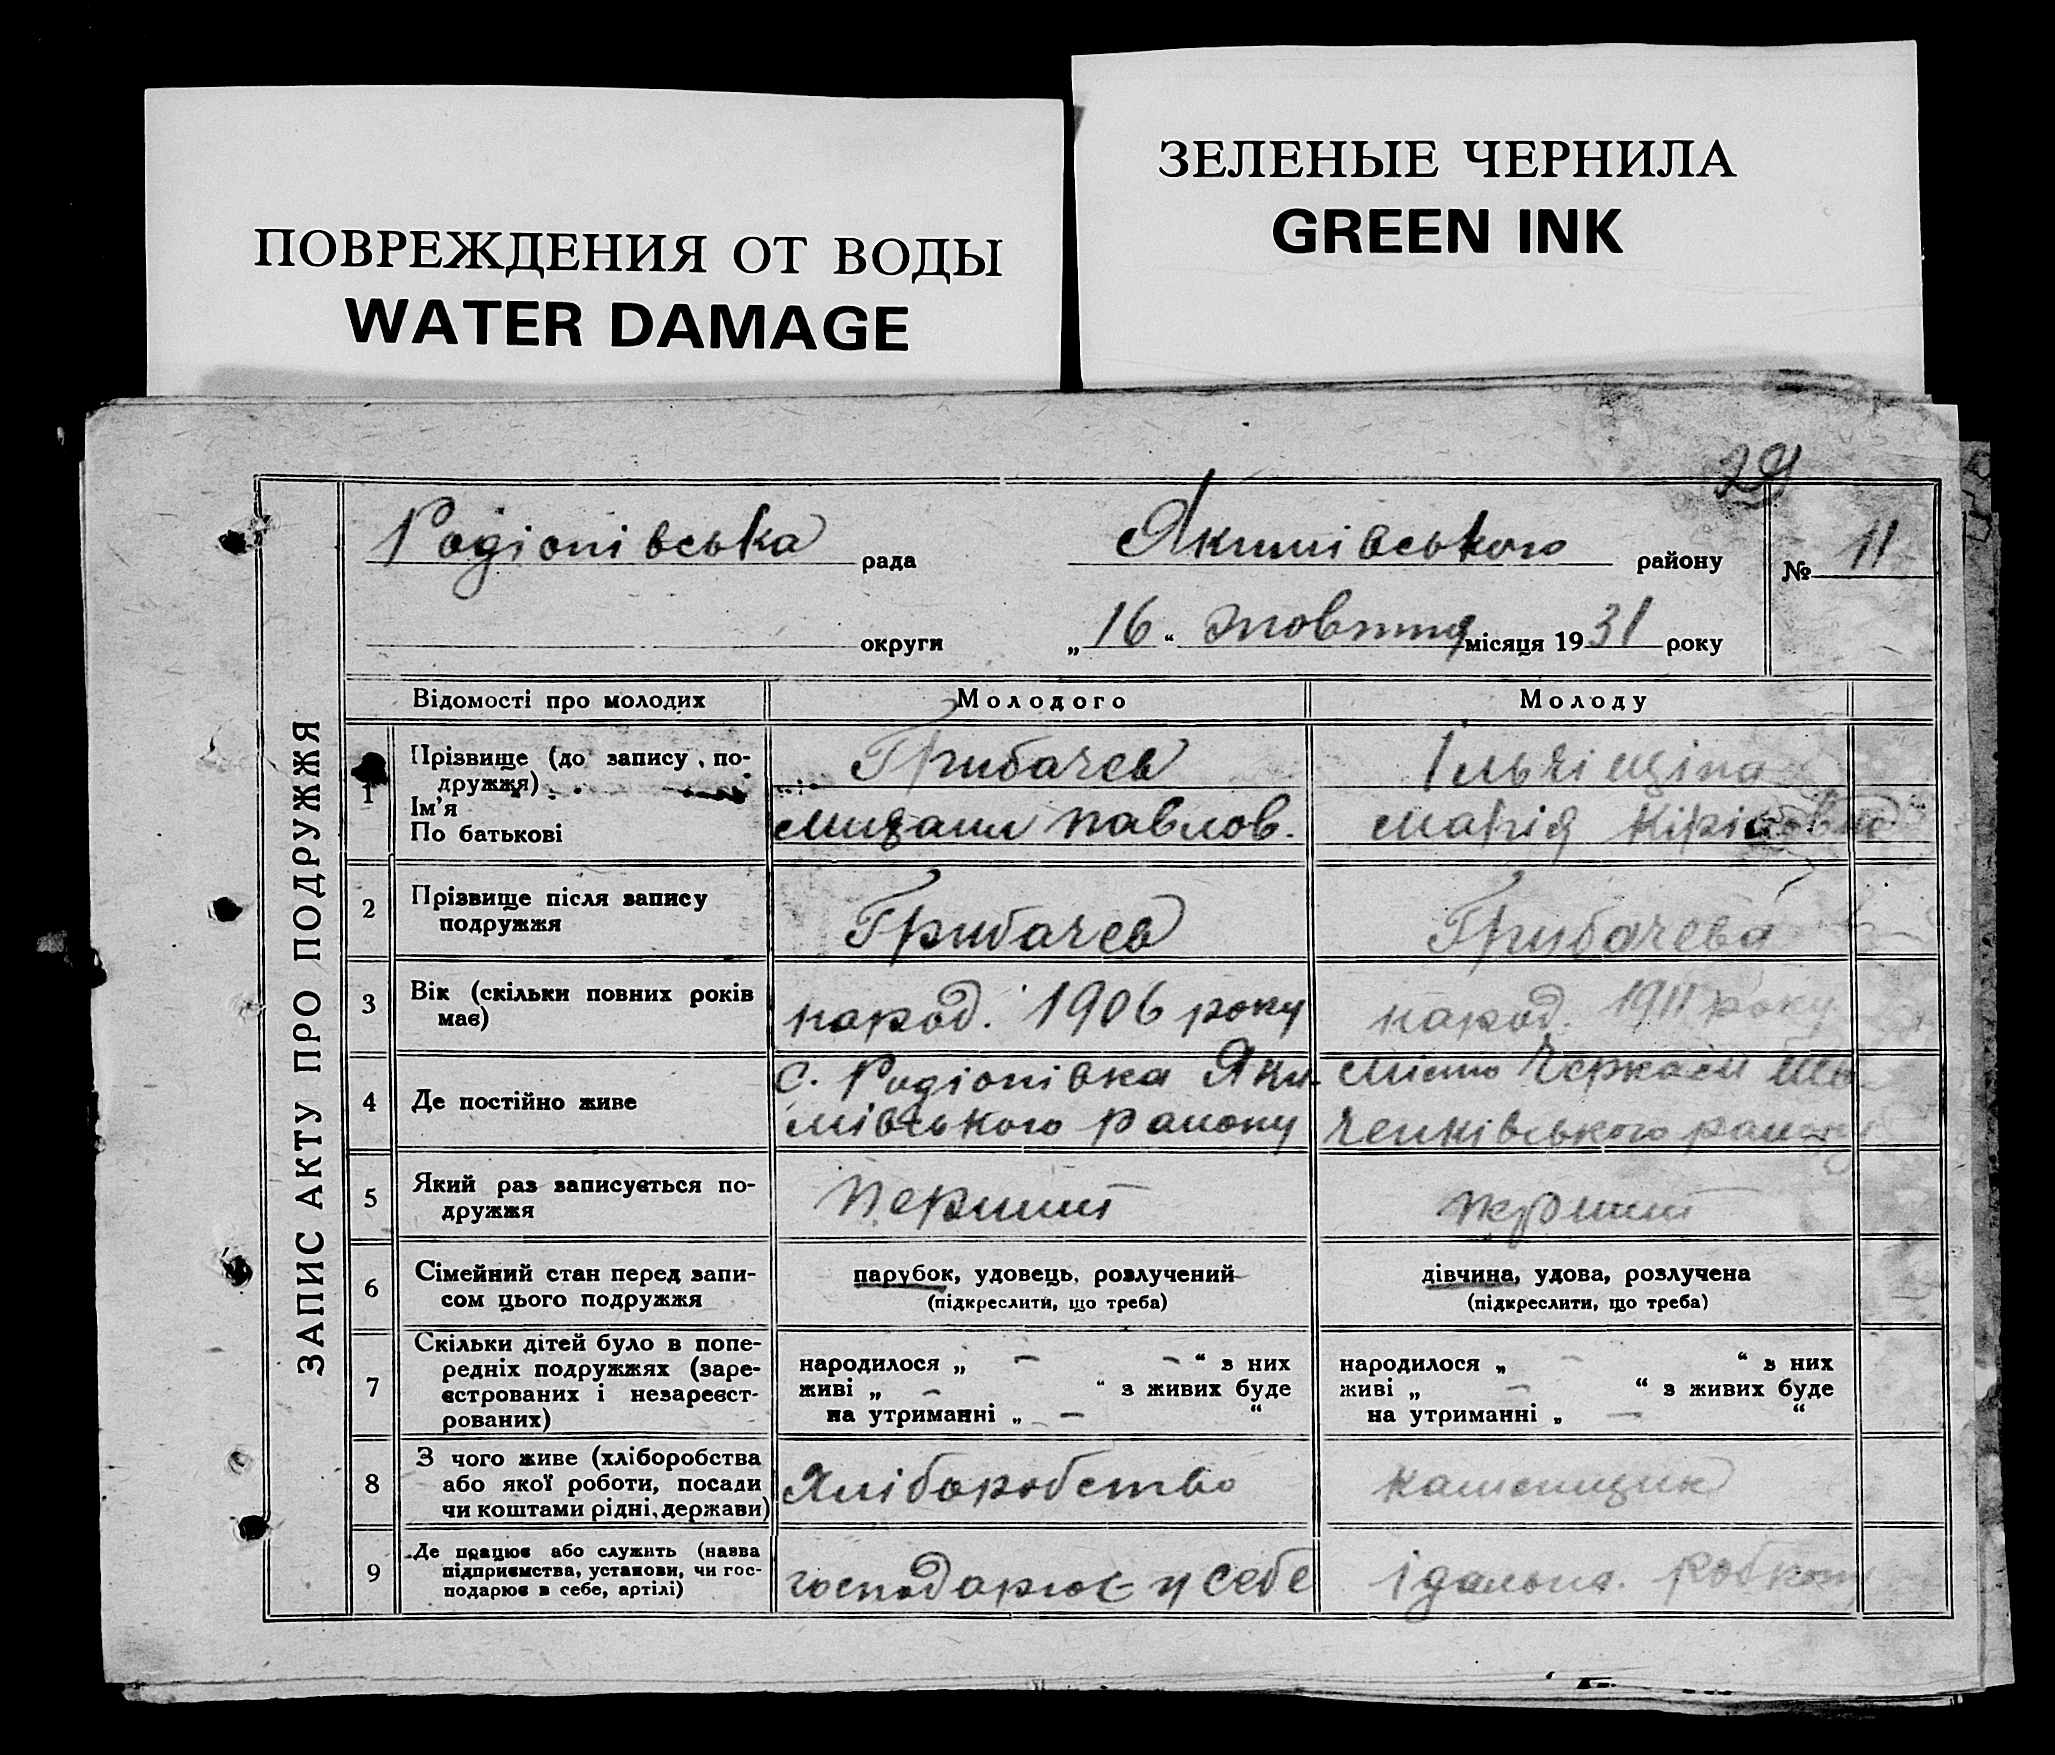 ПОВРЕЖДЕНИЯ ОТ ВОДЫ
WATER DAMAGE
ЗЕЛЕНЫЕ ЧЕРНИЛА
GREEN INK
29
ЗАПИС АКТУ ПРО ПОДРУЖЖЯ
Родіонівська рада Якимівського району № 11
округи „16“ жовтня місяця 1931 року
Відомості про молодих Молодого Молоду
1 Прізвище (до запису по-
дружжя) Грибачев
Ім'я
По батькові Михаил Павлов. Марія
2 Прізвище після запису
подружжя Грибачев Грибачева
3 Вік (скільки повних років
має) народ. 1906 року народ. 1911 року
4 Де постійно живе с. Родіонівка Яки-
мівського району
місто Черкаси Шев-
ченківського району
5 Який раз записується по-
дружжя Перший перший
6 Сімейний стан перед запи-
сом цього подружжя
парубок, удовець, розлучений
(підкреслити, що треба)
дівчина, удова, розлучена
(підкреслити, що треба)
7 Скільки дітей було в попе-
редніх подружжях (заре-
єстрованих і незареєст-
рованих)
народилося „ – – “ з них
живі „ – “ з живих буде
на утриманні „ – “
народилося „ – “ з них
живі „ – “ з живих буде
на утриманні „ – “
8 З чого живе (хліборобства
або якої роботи, посади
чи коштами рідні, держави)
Хліборобство
9 Де працює або служить (назва
підприємства, установи, чи гос-
подарює в себе, артілі)
господарює у себе
їдальня.